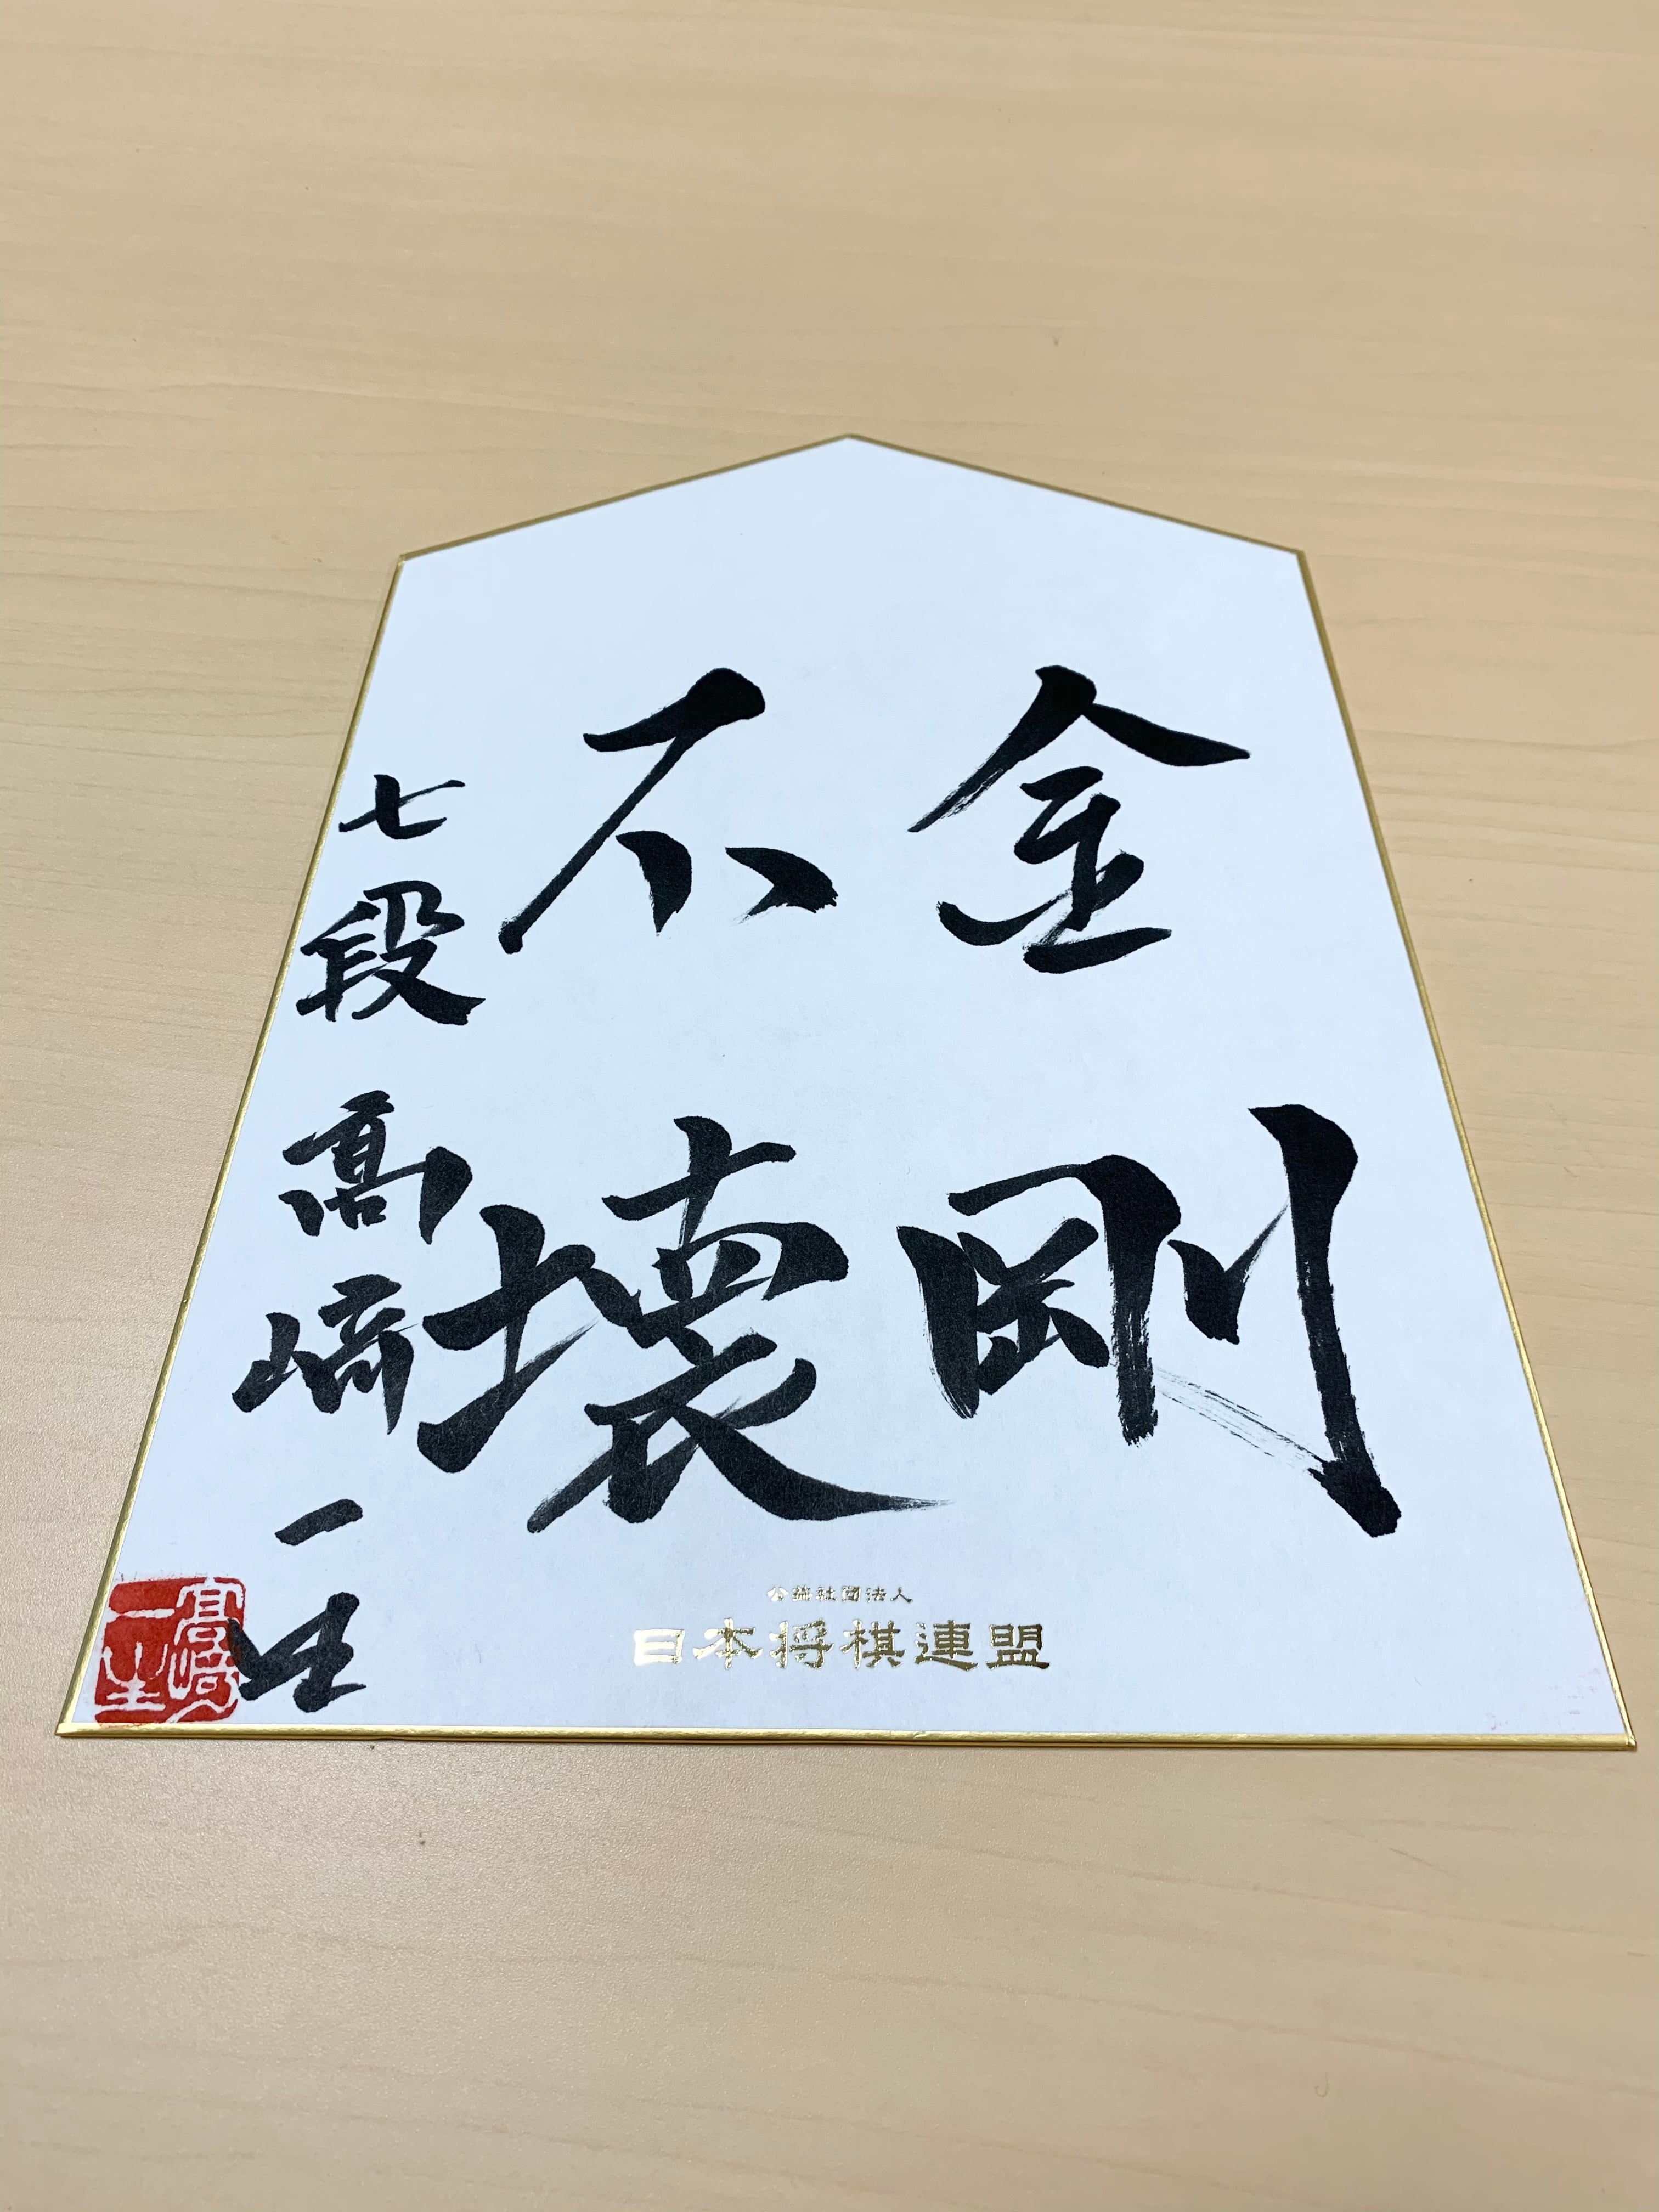 金剛
不壊
七段 髙﨑一生
公益社団法人
日本将棋連盟
髙﨑
一生